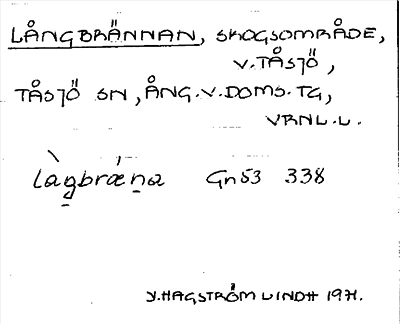 LÅNGBRÄNNAN, SKOGSOMRÅDE,
V. TÅSJÖ,
TÅSJÖ SN, ÅNG. V. DOMS. TG,
VRNL. L.
làg̱brǽṉa Gn53 338
Y. HAGSTRÖM LINDH 1971.